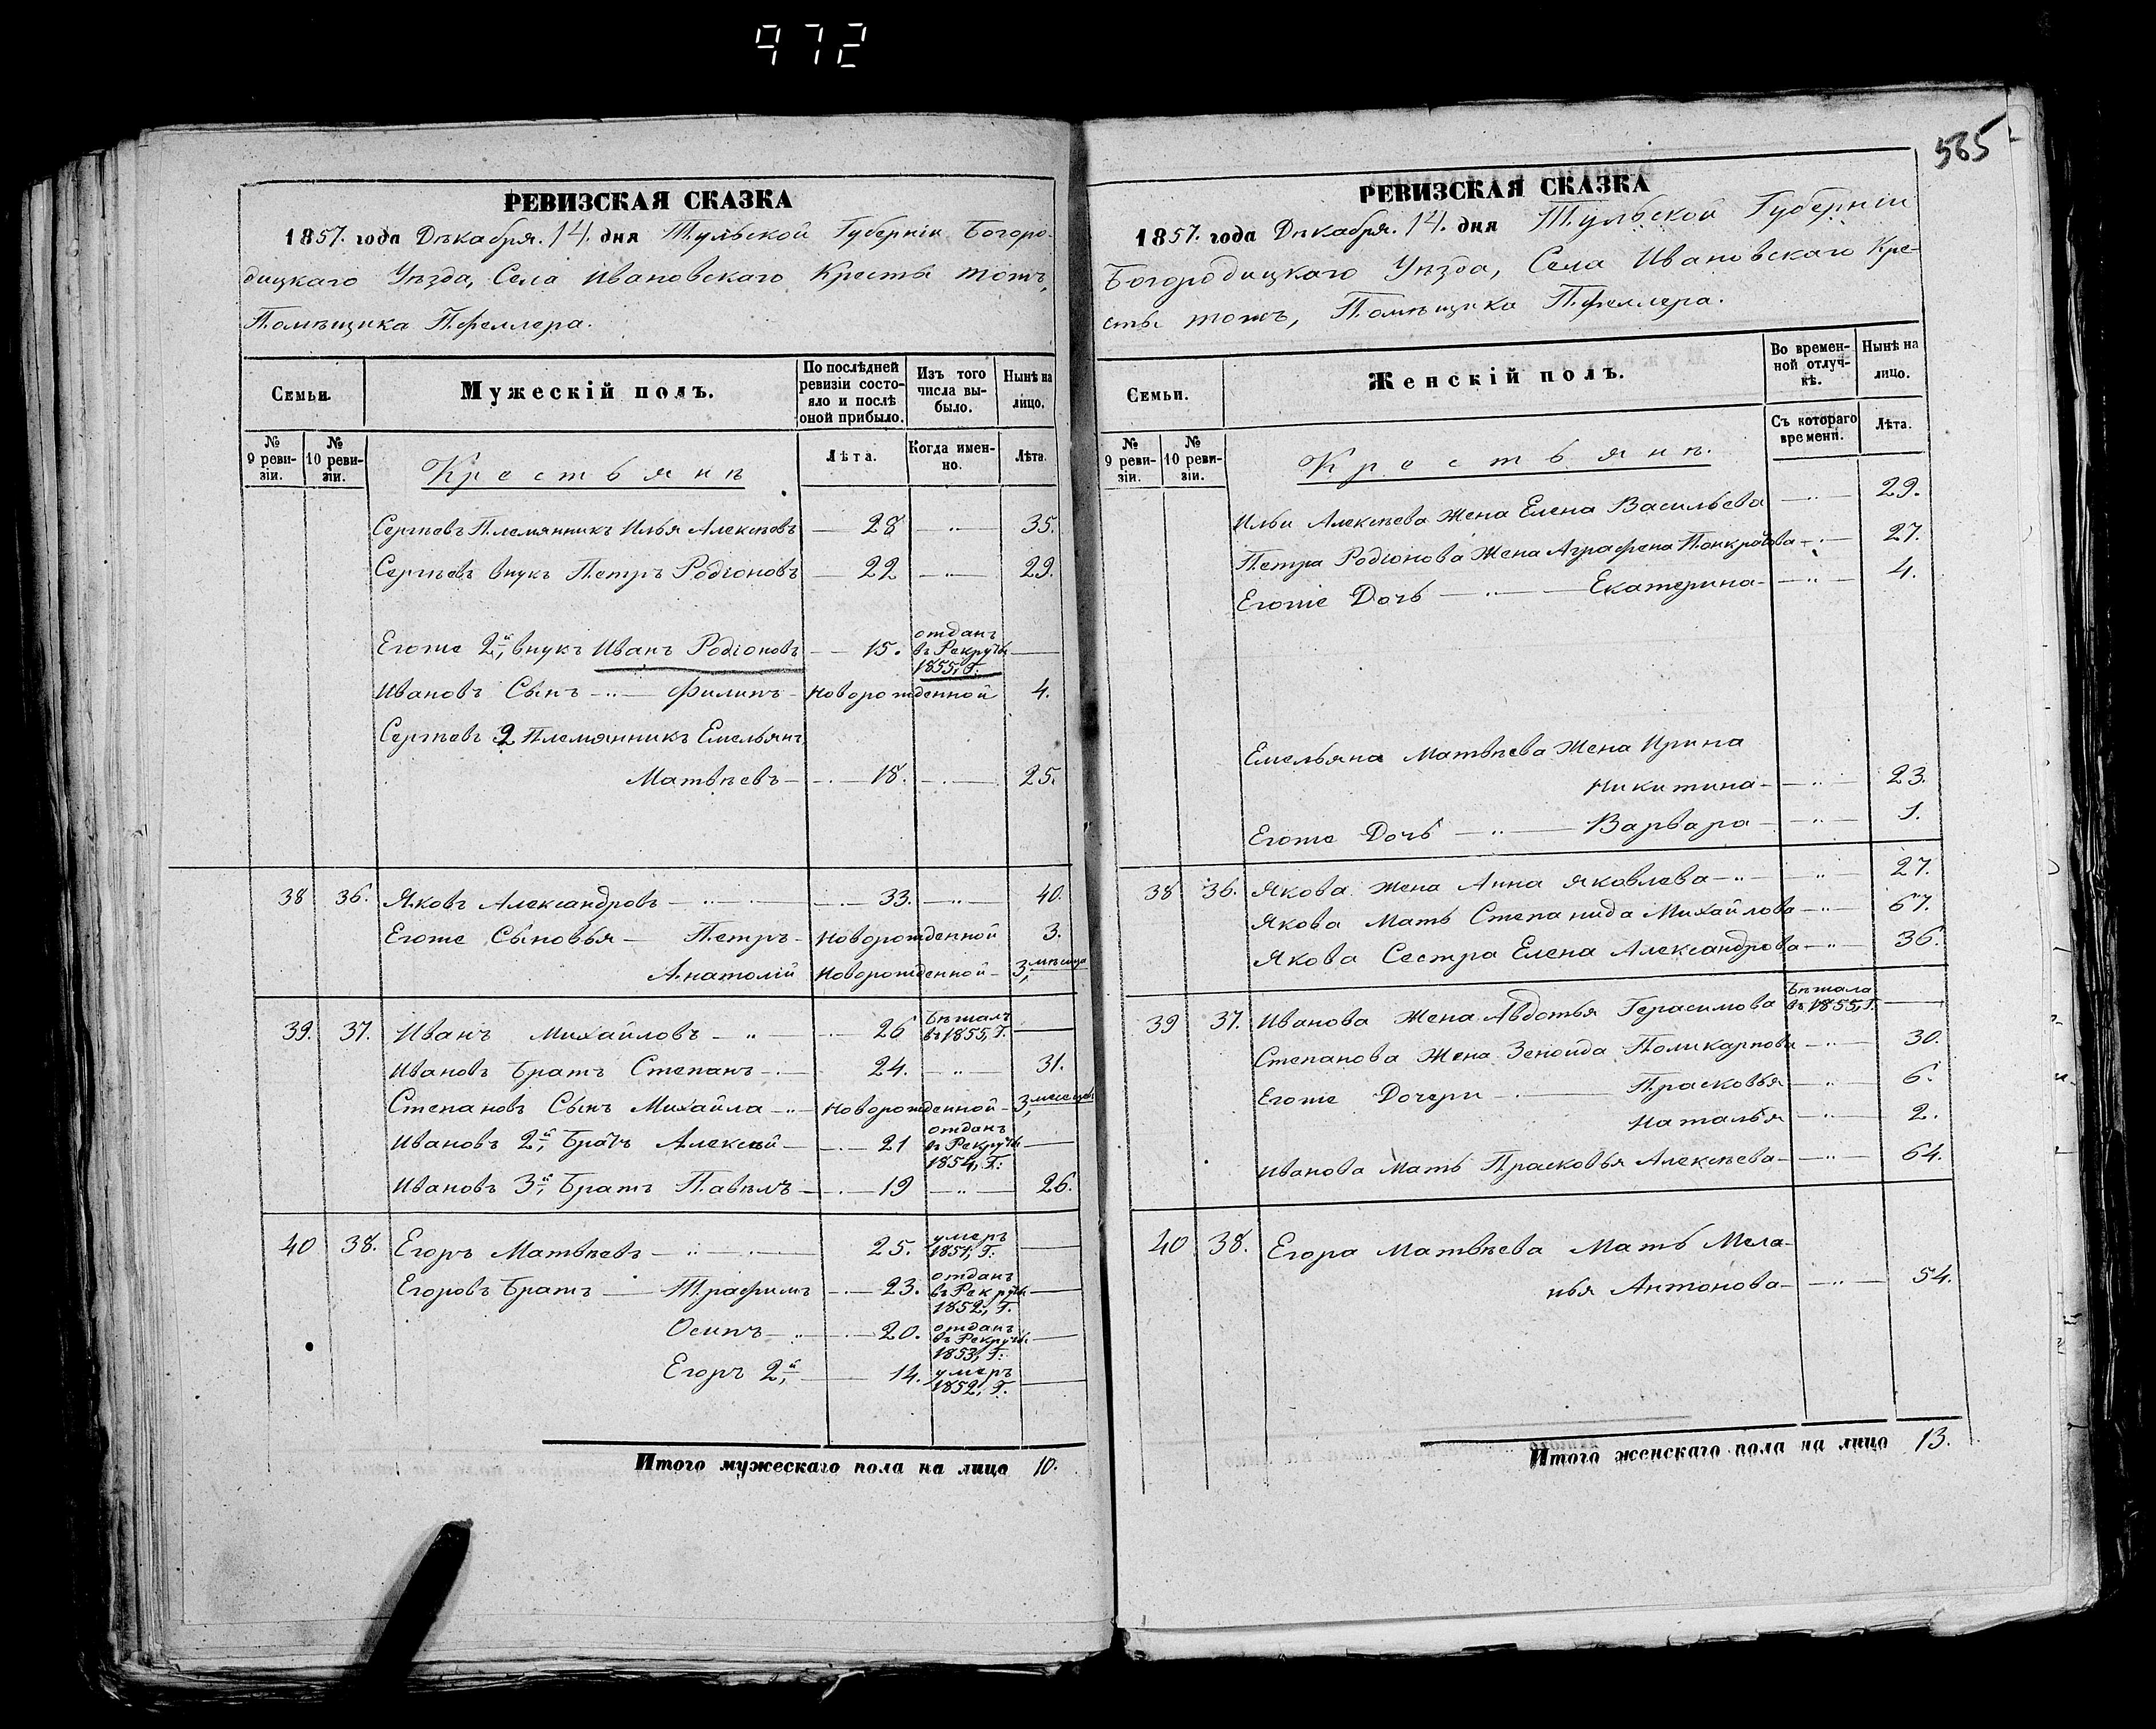 972
РЕВИЗСКАЯ СКАЗКА
1857. года Декабря. 14. дня Тульской Губерніи Богоро-
дицкаго Уѣзда, Села Ивановскаго Кресты тожъ,
Помѣщика Пфеллера.
Семьи.
Мужескій полъ.
По послѣдней ревизіи состояло и послѣ оной прибыло.
Изъ того числа выбыло.
Нынѣ на лицо.
№ 9 ревизіи.
№ 10 ревизіи.
Крестьянѣ
Лѣта.
Когда именно.
Лѣта.
Сергѣевъ Племянникъ Илья Алексѣевъ 28 35.
Сергѣевъ внукъ Петръ Родіоновъ 22 29.
Егоже 2й, внукъ Иванъ Родіоновъ 15. отданъ въ Рекруты 1855, Г.
Ивановъ Сынъ Филипъ Новорожденной 4.
Сергѣевъ 2 Племянникъ Емельянъ
Матвѣевъ 18. 25.
38 36. Яковъ Александровъ 33. 40.
Егоже Сыновья Петръ Новорожденной 3.
Анатолій Новорожденной 3, мѣсяца
39. 37. Иванъ Михайловъ 26 бѣжалъ въ 1855, Г.
Ивановъ Братъ Степанъ 24. 31.
Степановъ Сынъ Михайла Новорожденной 3,
Ивановъ 2й, Братъ Алексѣй 21 отданъ въ Рекруты 1854, Г:
Ивановъ 3й, Братъ Павѣлъ 19 26.
40 38. Егоръ Матвѣевъ 25. умеръ 1851, Г.
Егоровъ Братъ Трафимъ 23. отданъ въ Рекруты 1852, Г.
Осипъ 20. отданъ въ Рекруты 1853, Г:
Егоръ 2й, 14. умеръ 1852, Г.
Итого мужескаго пола на лицо 10.
585
РЕВИЗСКАЯ СКАЗКА
1857. года Декабря. 14. дня Тульской Губерніи
Богородицкаго Уѣзда, Села Ивановскаго Кре-
сты тожъ, Помѣщика Пфеллера.
Семьи.
Женскій полъ.
Во временной отлучкѣ.
Нынѣ на лицо.
№ 9 ревизіи.
№ 10 ревизіи.
Крестьянѣ.
Съ котораго времени.
Лѣта.
Ильи Алексѣева Жена Елена Васильева 29.
Петра Родіонова Жена Аграфена Понкратова 27.
Егоже Дочь Екатерина 4.
Емельяна Матвѣева Жена Ирина
Никитина 23.
Егоже Дочь Варвара 1.
38 36. Якова Жена Анна Яковлева 27.
Якова Мать Степанида Михайлова 67.
Якова Сестра Елена Александрова 36.
39 37. Иванова Жена Авдотья Герасимова бѣжала въ 1855, Г.
Степанова Жена Зеноида Поликарпова 30.
Егоже Дочери Прасковья 6.
Наталья 2.
Иванова Мать Прасковья Алексѣева 64.
40 38. Егора Матвѣева Мать Мела-
нья Антонова 54.
Итого женскаго пола на лицо 13.